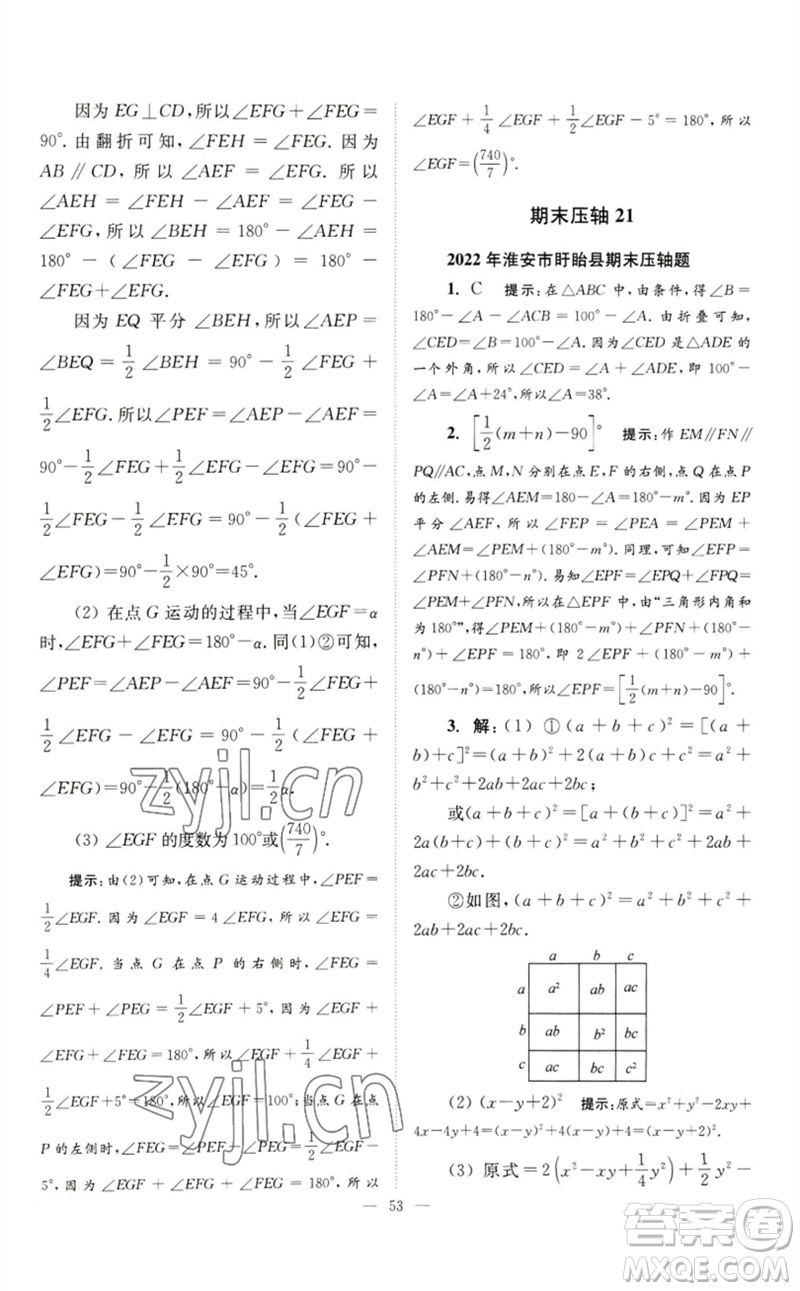 因为 EG⊥CD,所以∠EFG+∠FEG=
90°. 由翻折可知,∠FEH = ∠FEG. 因为
AB // CD, 所以 ∠AEF = ∠EFG. 所以
∠AEH = ∠FEH - ∠AEF = ∠FEG -
∠EFG, 所以 ∠BEH = 180° - ∠AEH =
180° - (∠FEG - ∠EFG) = 180° - ∠FEG +
∠EFG.
因为 EQ 平分 ∠BEH,所以∠AEP=
∠BEQ = 1/2 ∠BEH = 90° - 1/2 ∠FEG +
1/2∠EFG. 所以∠PEF=∠AEP-∠AEF=
90°-1/2∠FEG+1/2∠EFG-∠EFG=90°-
1/2∠FEG-1/2∠EFG=90°-1/2(∠FEG+
∠EFG)=90°-1/2×90°=45°.
(2) 在点 G 运动的过程中,当∠EGF=α
时,∠EFG+∠FEG=180°-α. 同(1)②可知,
∠PEF=∠AEP-∠AEF=90°-1/2∠FEG+
1/2∠EFG-∠EFG=90°-1/2(∠FEG+
∠EFG)=90°-1/2(180°-α)=1/2α.
(3) ∠EGF 的度数为100°或(740/7)°.
提示:由(2)可知,在点 G 运动过程中,∠PEF=
1/2∠EGF. 因为 ∠EGF = 4 ∠EFG, 所以 ∠EFG=
1/4∠EGF. 当点 G 在点 P 的右侧时,∠FEG=
∠PEF+∠PEG=1/2∠EGF+5°, 因为 ∠EGF+
∠EFG+∠FEG=180°,所以∠EGF+1/4∠EGF+
1/2∠EGF+5°=180°,所以∠EGF=100°;当点 G 在点
P 的左侧时,∠FEG=∠PEF-∠PEG=1/2∠EGF-
5°, 因为 ∠EGF + ∠EFG + ∠FEG = 180°, 所以
∠EGF + 1/4 ∠EGF + 1/2∠EGF - 5° = 180°, 所以
∠EGF=(740/7)°.
期末压轴 21
2022 年淮安市盱眙县期末压轴题
1. C 提示:在△ABC 中,由条件,得∠B=
180°-∠A-∠ACB=100°-∠A. 由折叠可知,
∠CED=∠B=100°-∠A. 因为∠CED 是△ADE 的
一个外角,所以∠CED=∠A+∠ADE,即 100°-
∠A=∠A+24°,所以∠A=38°.
2. [1/2(m+n)-90]° 提示:作 EM//FN//
PQ//AC,点 M,N 分别在点 E,F 的右侧,点 Q 在点 P
的左侧. 易得∠AEM=180-∠A=(180-m°. 因为 EP
平分 ∠AEF, 所以 ∠FEP = ∠PEA = ∠PEM +
∠AEM=∠PEM+(180°-m°). 同理,可知∠EFP=
∠PFN+(180°-n°). 易知∠EPF=∠EPQ+∠FPQ=
∠PEM+∠PFN,所以在△EPF 中,由“三角形内角和
为 180°”,得∠PEM+(180°-m°)+∠PFN+(180°-
n°)+∠EPF = 180°, 即 2∠EPF + (180° - m°) +
(180°-n°)=180°,所以∠EPF=[1/2(m+n)-90]°.
3. 解:(1) ①(a+b+c)²=[(a+
b)+c]²=(a+b)²+2c(a+b)+c²=a²+
b²+c²+2ab+2ac+2bc;
或(a+b+c)²=[a+(b+c)]²=a²+
2a(b+c)+(b+c)²=a²+b²+c²+2ab+
2ac+2bc.
②如图,(a+b+c)²=a²+b²+c²+
2ab+2ac+2bc.
a b c
a a² ab ac
b ab b² bc
c ac bc c²
(2) (x-y+2)² 提示:原式=x²+y²-2xy+
4x-4y+4=(x-y)²+4(x-y)+4=(x-y+2)².
(3) 原式=2(x²-xy+1/4y²)+1/2y²-
— 53 —
zyjl.cn
zyjl.cn
答案圈
MXQE.COM